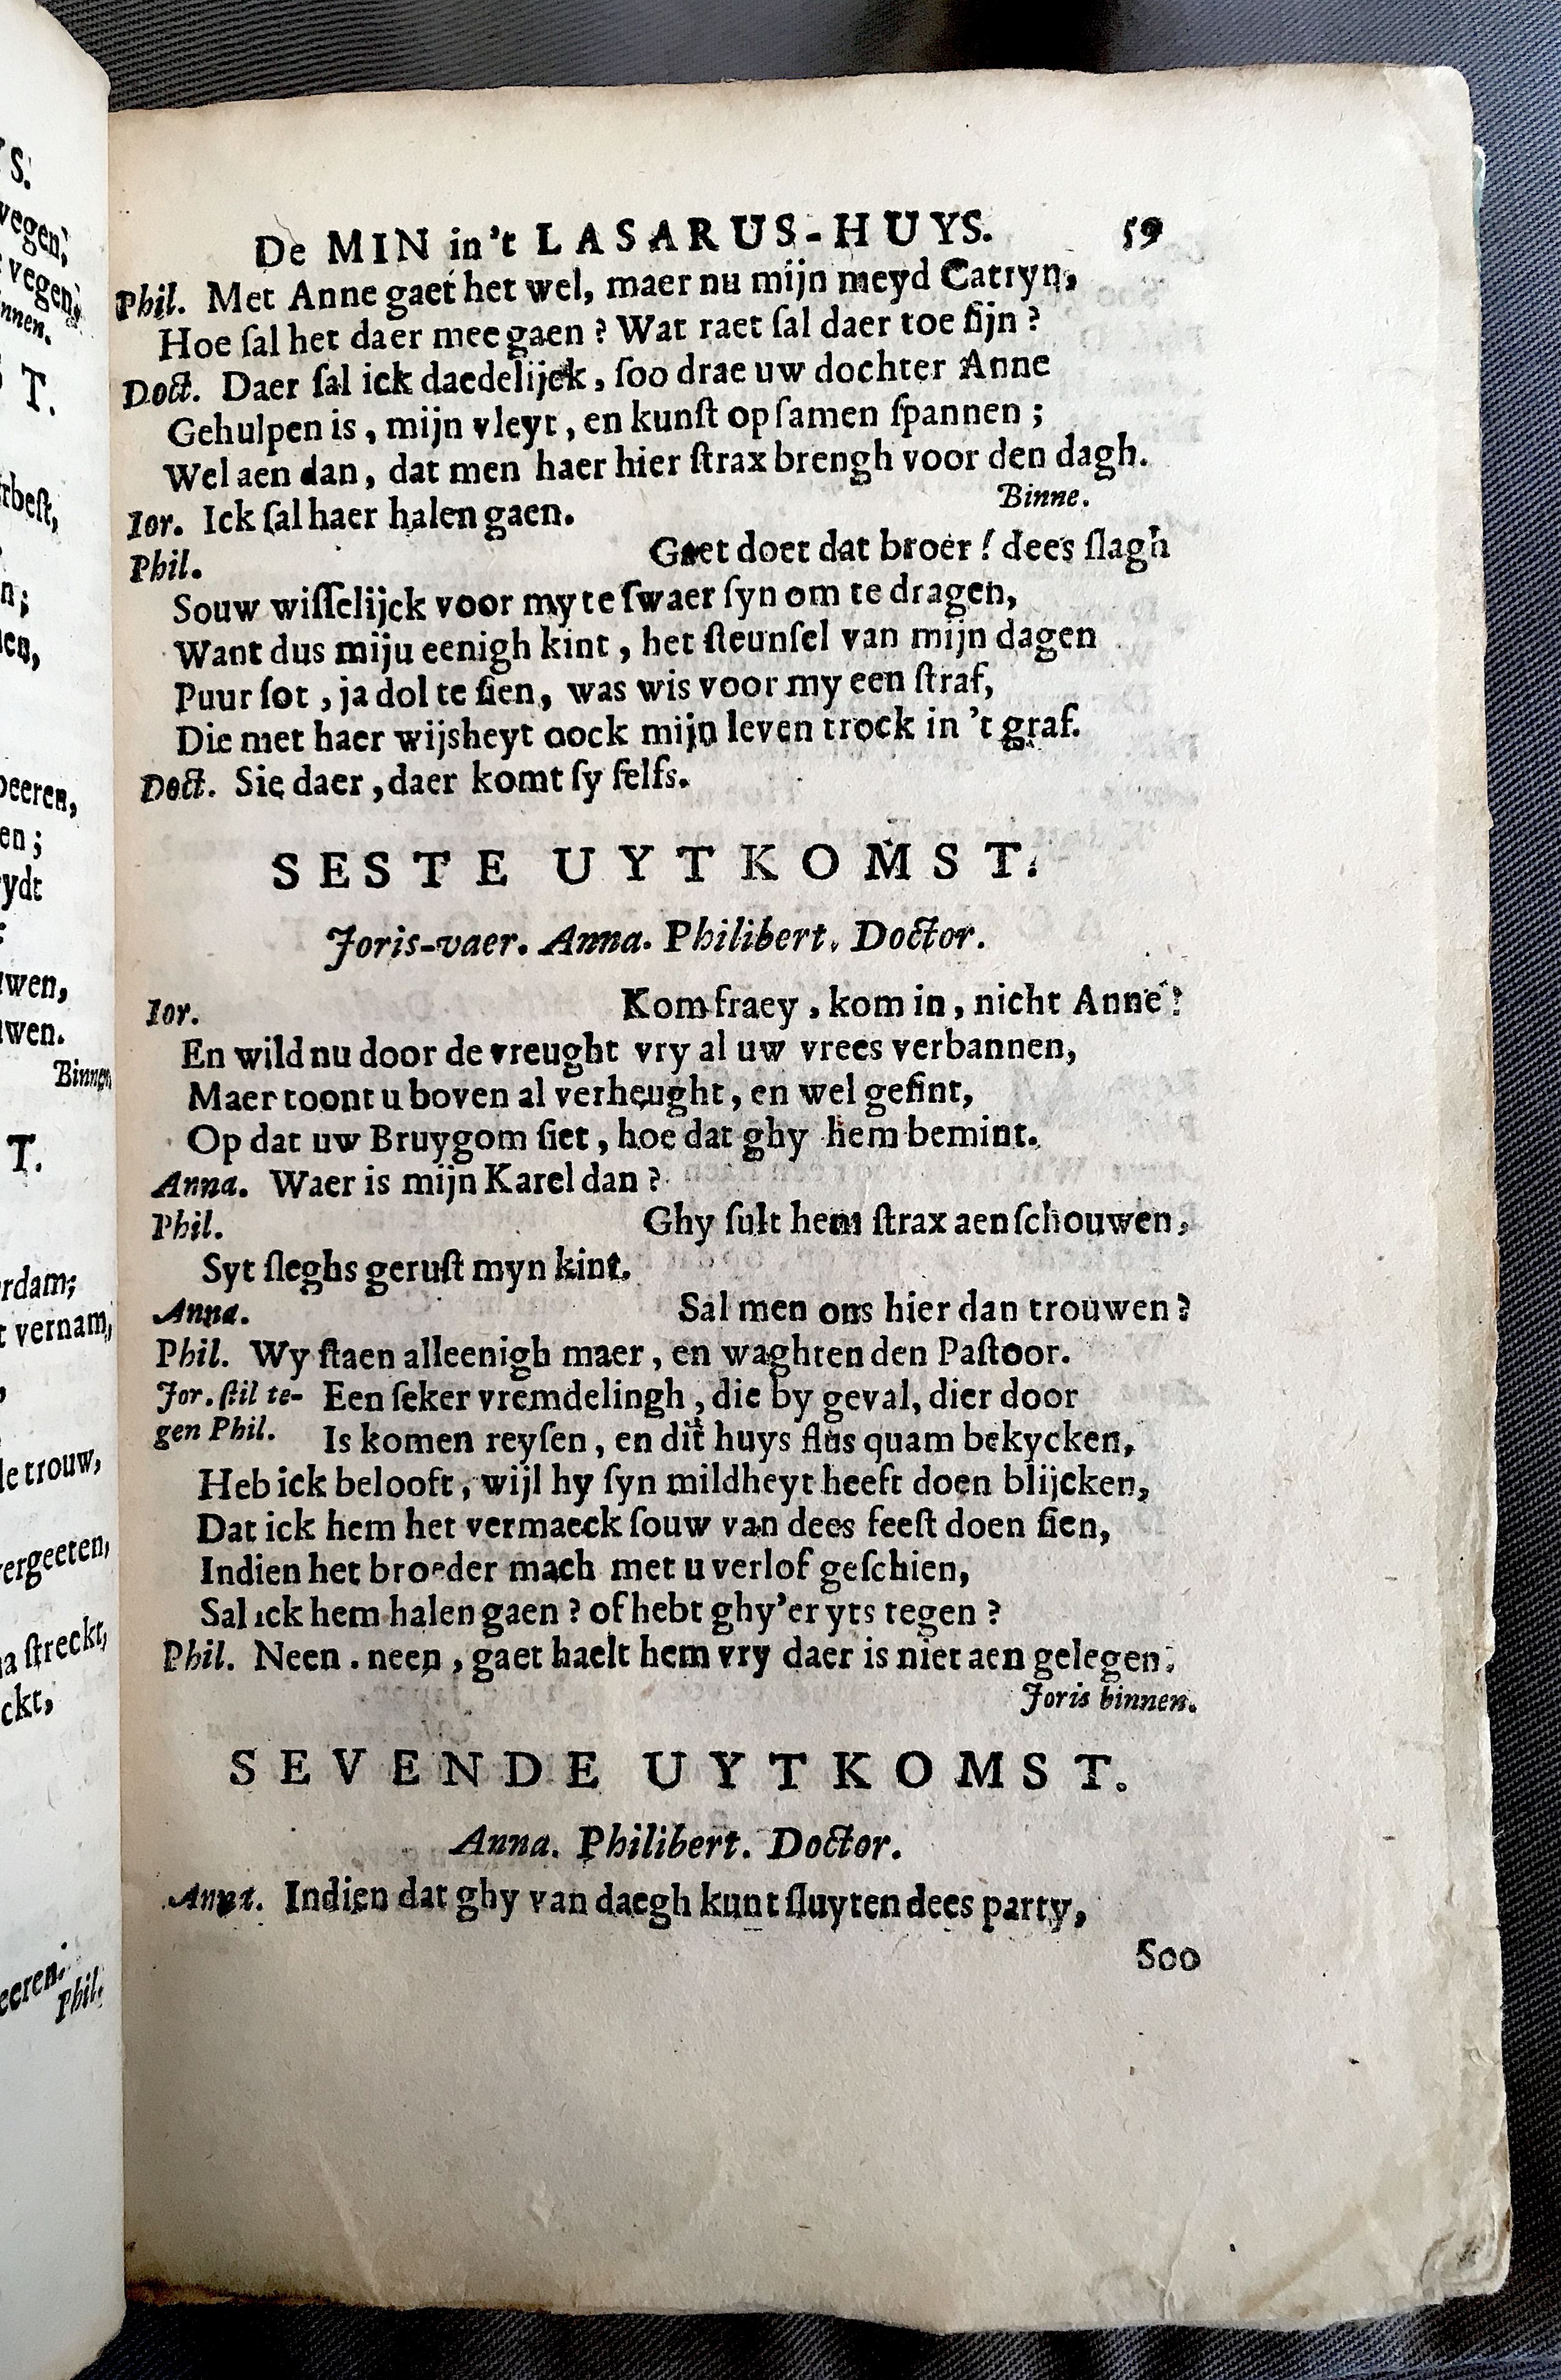 De MIN in't LASARUS-HUYS. 59
Phil. Met Anne gaet het wel, maer nu mijn meyd Catryn,
Hoe ſal het daer mee gaen? Wat raet ſal daer toe ſijn?
Doct. Daer ſal ick daedelijck, ſoo drae uw dochter Anne
Gehulpen is, mijn vleyt, en kunſt op ſamen ſpannen;
Wel aen dan, dat men haer hier ſtrax brengh voor den dagh.
Binne.
Ior. Ick ſal haer halen gaen.
Phil. Gaet doet dat broer! dees ſlagh
Souw wiſſelijck voor my te ſwaer ſyn om te dragen,
Want dus miju eenigh kint, het ſteunſel van mijn dagen
Puur ſot, ja dol te ſien, was wis voor my een ſtraf,
Die met haer wijsheyt oock mijn leven trock in 't graf.
Doct. Sie daer, daer komt ſy ſelfs.
SESTE UYTKOMST.
Joris-vaer. Anna. Philibert. Doctor.
Ior. Kom fraey, kom in, nicht Anne!
En wild nu door de vreught vry al uw vrees verbannen,
Maer toont u boven al verheught, en wel geſint,
Op dat uw Bruygom ſiet, hoe dat ghy hem bemint.
Anna. Waer is mijn Karel dan?
Phil. Ghy ſult hem ſtrax aenſchouwen,
Syt ſleghs geruſt myn kint.
Anna. Sal men ons hier dan trouwen?
Phil. Wy ſtaen alleenigh maer, en waghten den Paſtoor.
Jor. ſtil te- Een ſeker vremdelingh, die by geval, dier door
gen Phil. Is komen reyſen, en dit huys flus quam bekycken,
Heb ick belooft, wijl hy ſyn mildheyt heeft doen blijcken,
Dat ick hem het vermaeck ſouw van dees feeſt doen ſien,
Indien het broeder mach met u verlof geſchien,
Sal ick hem halen gaen? of hebt ghy'er yts tegen?
Phil. Neen. neen, gaet haelt hem vry daer is niet aen gelegen.
Joris binnen.
SEVENDE UYTKOMST.
Anna. Philibert. Doctor.
Anna. Indien dat ghy van daegh kunt ſluyten dees party,
Soo